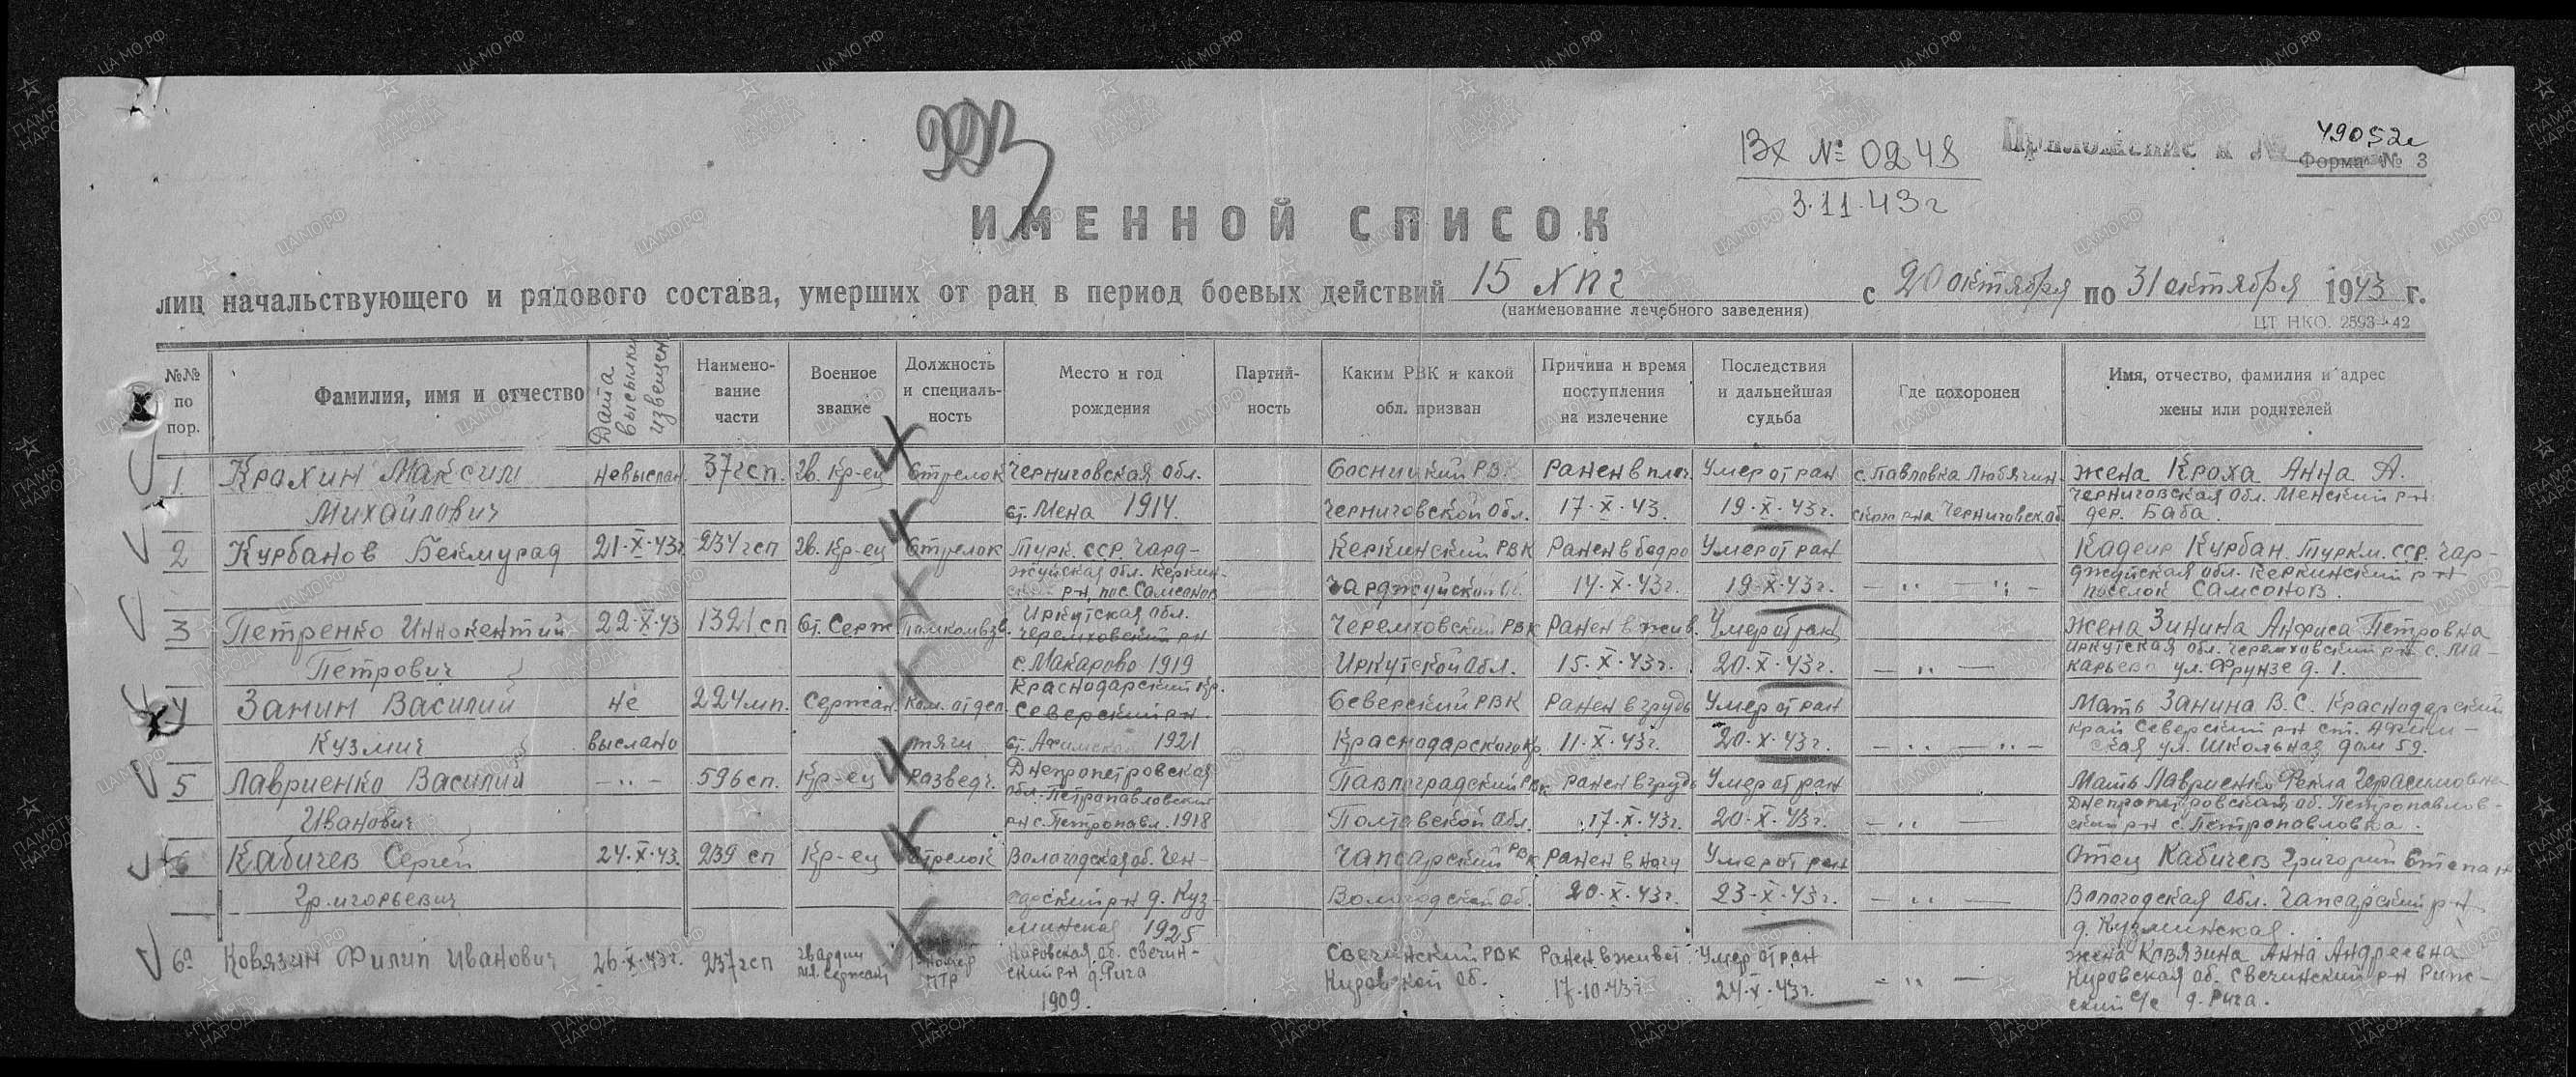 Вх № 0248
3.11.43 г
Приложение к № 49052с
Форма № 3
ИМЕННОЙ СПИСОК
лиц начальствующего и рядового состава, умерших от ран в период боевых действий 15 хпг с 20 октября по 31 октября 1943 г.
(наименование лечебного заведения)
ЦТ НКО. 2593—42
№№ по пор. Фамилия, имя и отчество Дата высылки извещен Наименование части Военное звание Должность и специальность Место и год рождения Партийность Каким РВК и какой обл. призван Причина и время поступления на излечение Последствия и дальнейшая судьба Где похоронен Имя, отчество, фамилия и адрес жены или родителей
1 Крахин Максим невыслан 37 гсп. Гв. Кр-ец Стрелок Черниговская обл. Сосницкий РВК Ранен в плеч. Умер от ран с. Павловка Любечин- жена Кроха Анна А.
Михайлович ст. Мена 1914. Черниговской обл. 17·X·43. 19·X·43г. ск р-на Черниговск. об. Черниговская обл. Менский р-н
дер. Баба.
2 Курбанов Бекмурад 21·X·43г. 234 гсп Гв. Кр-ец Стрелок Турк. ССР. Чард- Керкинский РВК Ранен в бедро Умер от ран Кадеир Курбан. Туркм. ССР. Чар-
жуйская обл. Керкин- Чарджуйской 14·X·43г. 19·X·43г. — " — " — джуйская обл. Керкинский р-н
р-н, пос. Самсонов поселок Самсонов.
3 Петренко Иннокентий 22·X·43 1321 сп Ст. Серж Помкомвзв. Иркутская обл. Черемховский РВК Ранен в жив. Умер от ран жена Зинина Анфиса Петровна
Черемховский р-н Иркутская обл. Черемховский р-н с. Ма-
Петрович с. Макарово 1919 Иркутской обл. 15·X·43г. 20·X·43г. — " — карьево ул. Фрунзе д. 1.
4 Занин Василий не 224 мп. Сержан Ком. отдел Краснодарский кр. Северский РВК Ранен в грудь Умер от ран Мать Занина В. С. Краснодарский
Северский р-н край Северский р-н ст. Афип-
Кузмич выслано тяги ст. Афипская 1921 Краснодарского кр 11·X·43г. 20·X·43г. — " — " — ская ул. Школьная дом 59.
5 Лавриенко Василий — " — 596 сп. Кр-ец Разведч. Днепропетровская Павлоградский РВК Ранен в грудь Умер от ран Мать Лавриенко Фекла Герасимовна
обл. Петропавловский Днепропетровская об. Петропавлов-
Иванович р-н с. Петропавл. 1918 Полтавской обл. 17·X·43г. 20·X·43г. — " — ский р-н с. Петропавловка.
6 Кабичев Сергей 24·X·43. 239 сп Кр-ец Стрелок Вологодская об. Чеп- Чапсарский РВК Ранен в ногу Умер от ран Отец Кабичев Григорий Степан
Григорьевич сарский р-н д. Куз- Вологодской об. 20·X·43г. 23·X·43г. — " — Вологодская обл. Чапсарский р-н
минская 1925 д. Кузминская.
6а Ковязин Филип Иванович 26·X·43г. 237 гсп Гвардии мл. сержант номер ПТР Кировская об. Свечин- Свечинский РВК Ранен в живот Умер от ран жена Ковязина Анна Андреевна
ский р-н д. Рига Кировской об. 17·10·43г 24·X·43г. — " — Кировская об. Свечинский р-н Риж-
1909. ский с/с д. Рига.